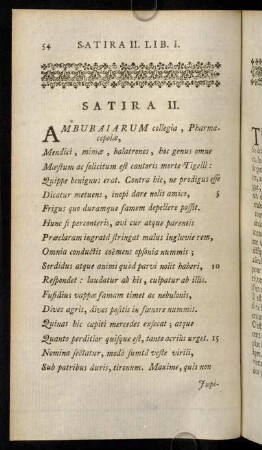 54 SATIRA II. LIB. I.
SATIRA II.
AMBUBAIARUM collegia, Pharma-
copolæ,
Mendici, mimæ, balatrones, hoc genus omne
Mœstum ac solicitum est cantoris morte Tigelli:
Quippe benignus erat. Contra hic, ne prodigus esse
Dicatur metuens, inopi dare nolit amico, 5
Frigus quo duramque famem depellere possit.
Hunc si perconteris, avi cur atque parentis
Præclaram ingratâ stringat malus ingluvie rem,
Omnia conductis coëmens opsonia nummis;
Sordidus atque animi quòd parvi nolit haberi, 10
Respondet: laudatur ab his, culpatur ab illis.
Fufidius vappæ famam timet ac nebulonis,
Dives agris, dives positis in fœnore nummis.
Quinas hic capiti mercedes exsecat; atque
Quanto perditior quisque est, tanto acrius urget. 15
Nomina sectatur, modò sumtâ veste virili,
Sub patribus duris, tironum. Maxime, quis non
Jupi-